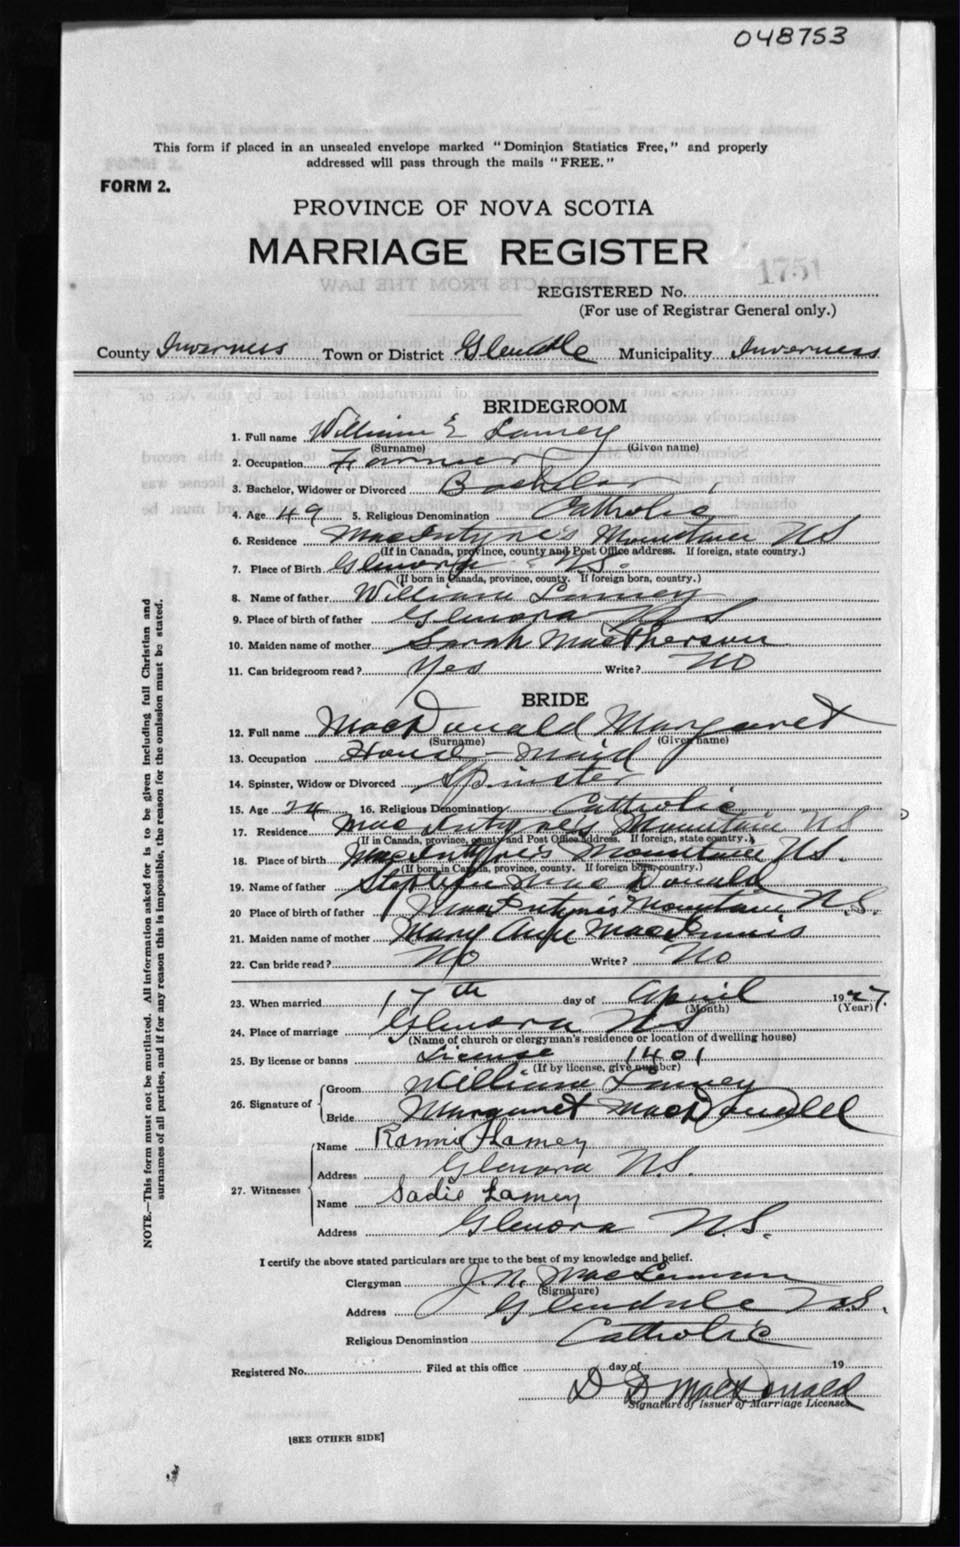 048753
This form if placed in an unsealed envelope marked "Dominion Statistics Free," and properly
addressed will pass through the mails "FREE."
FORM 2.
PROVINCE OF NOVA SCOTIA
MARRIAGE REGISTER
1751
REGISTERED No.
(For use of Registrar General only.)
County Inverness Town or District Glendale Municipality Inverness
BRIDEGROOM
1. Full name William E Lamey
(Surname) (Given name)
2. Occupation Farmer
3. Bachelor, Widower or Divorced Bachelor
4. Age 49 5. Religious Denomination Catholic
6. Residence MacIntyre's Mountain NS
(If in Canada, province, county and Post Office address. If foreign, state country.)
7. Place of Birth Glenora N.S.
(If born in Canada, province, county. If foreign born, country.)
8. Name of father William Lamey
9. Place of birth of father Glenora NS
10. Maiden name of mother Sarah MacPherson
11. Can bridegroom read? Yes Write? No
BRIDE
12. Full name MacDonald Margaret
(Surname) (Given name)
13. Occupation House-maid
14. Spinster, Widow or Divorced Spinster
15. Age 24 16. Religious Denomination Catholic
17. Residence MacIntyre's Mountain NS
(If in Canada, province, county and Post Office address. If foreign, state country.)
18. Place of birth MacIntyre's Mountain NS.
(If born in Canada, province, county. If foreign born, country.)
19. Name of father Stephen MacDonald
20 Place of birth of father MacIntyre's Mountain N.S.
21. Maiden name of mother Mary Anne MacInnis
22. Can bride read? No Write? No
23. When married 17th day of April 1927.
(Month) (Year)
24. Place of marriage Glenora NS
(Name of church or clergyman's residence or location of dwelling house)
25. By license or banns License 1401
(If by license, give number)
26. Signature of Groom William Lamey
Bride Margaret MacDonald
27. Witnesses Name Rannie Lamey
Address Glenora N.S.
Name Sadie Lamey
Address Glenora N.S.
I certify the above stated particulars are true to the best of my knowledge and belief.
Clergyman J. N. MacLennan
(Signature)
Address Glendale N.S.
Religious Denomination Catholic
Registered No. Filed at this office day of 19
D D MacDonald
Signature of Issuer of Marriage Licenses.
[SEE OTHER SIDE]
NOTE.—This form must not be mutilated. All information asked for is to be given including full Christian and
surnames of all parties, and if for any reason this is impossible, the reason for the omission must be stated.